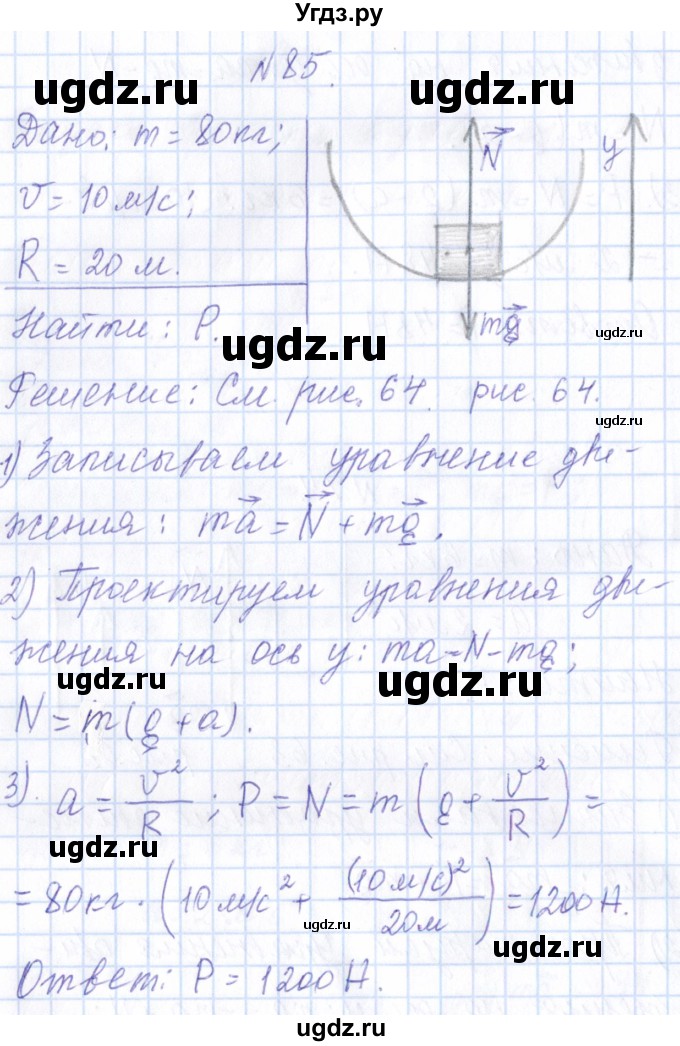 Угдз.ру
№85.
ugdz.ru ugdz.ru
Дано: m = 80кг;
v = 10 м/с;
R = 20 м.
N⃗ y
mg⃗
ugdz.ru
Найти: P.
ugdz.ru
Решение: См. рис. 64. рис. 64.
ugdz.ru
1) Записываем уравнение дви-
жения: ma⃗ = N⃗ + mg⃗.
2) Проектируем уравнения дви-
жения на ось y: ma=N-mg;
ugdz.ru ugdz.ru
N = m(g+a).
3). a = v²/R; P = N = m(g + v²/R) =
ugdz.ru
= 80кг · (10 м/с² + (10 м/с)²/20м) = 1200 Н.
ugdz.ru ugdz.ru
Ответ: P = 1200 Н.
ugdz.ru